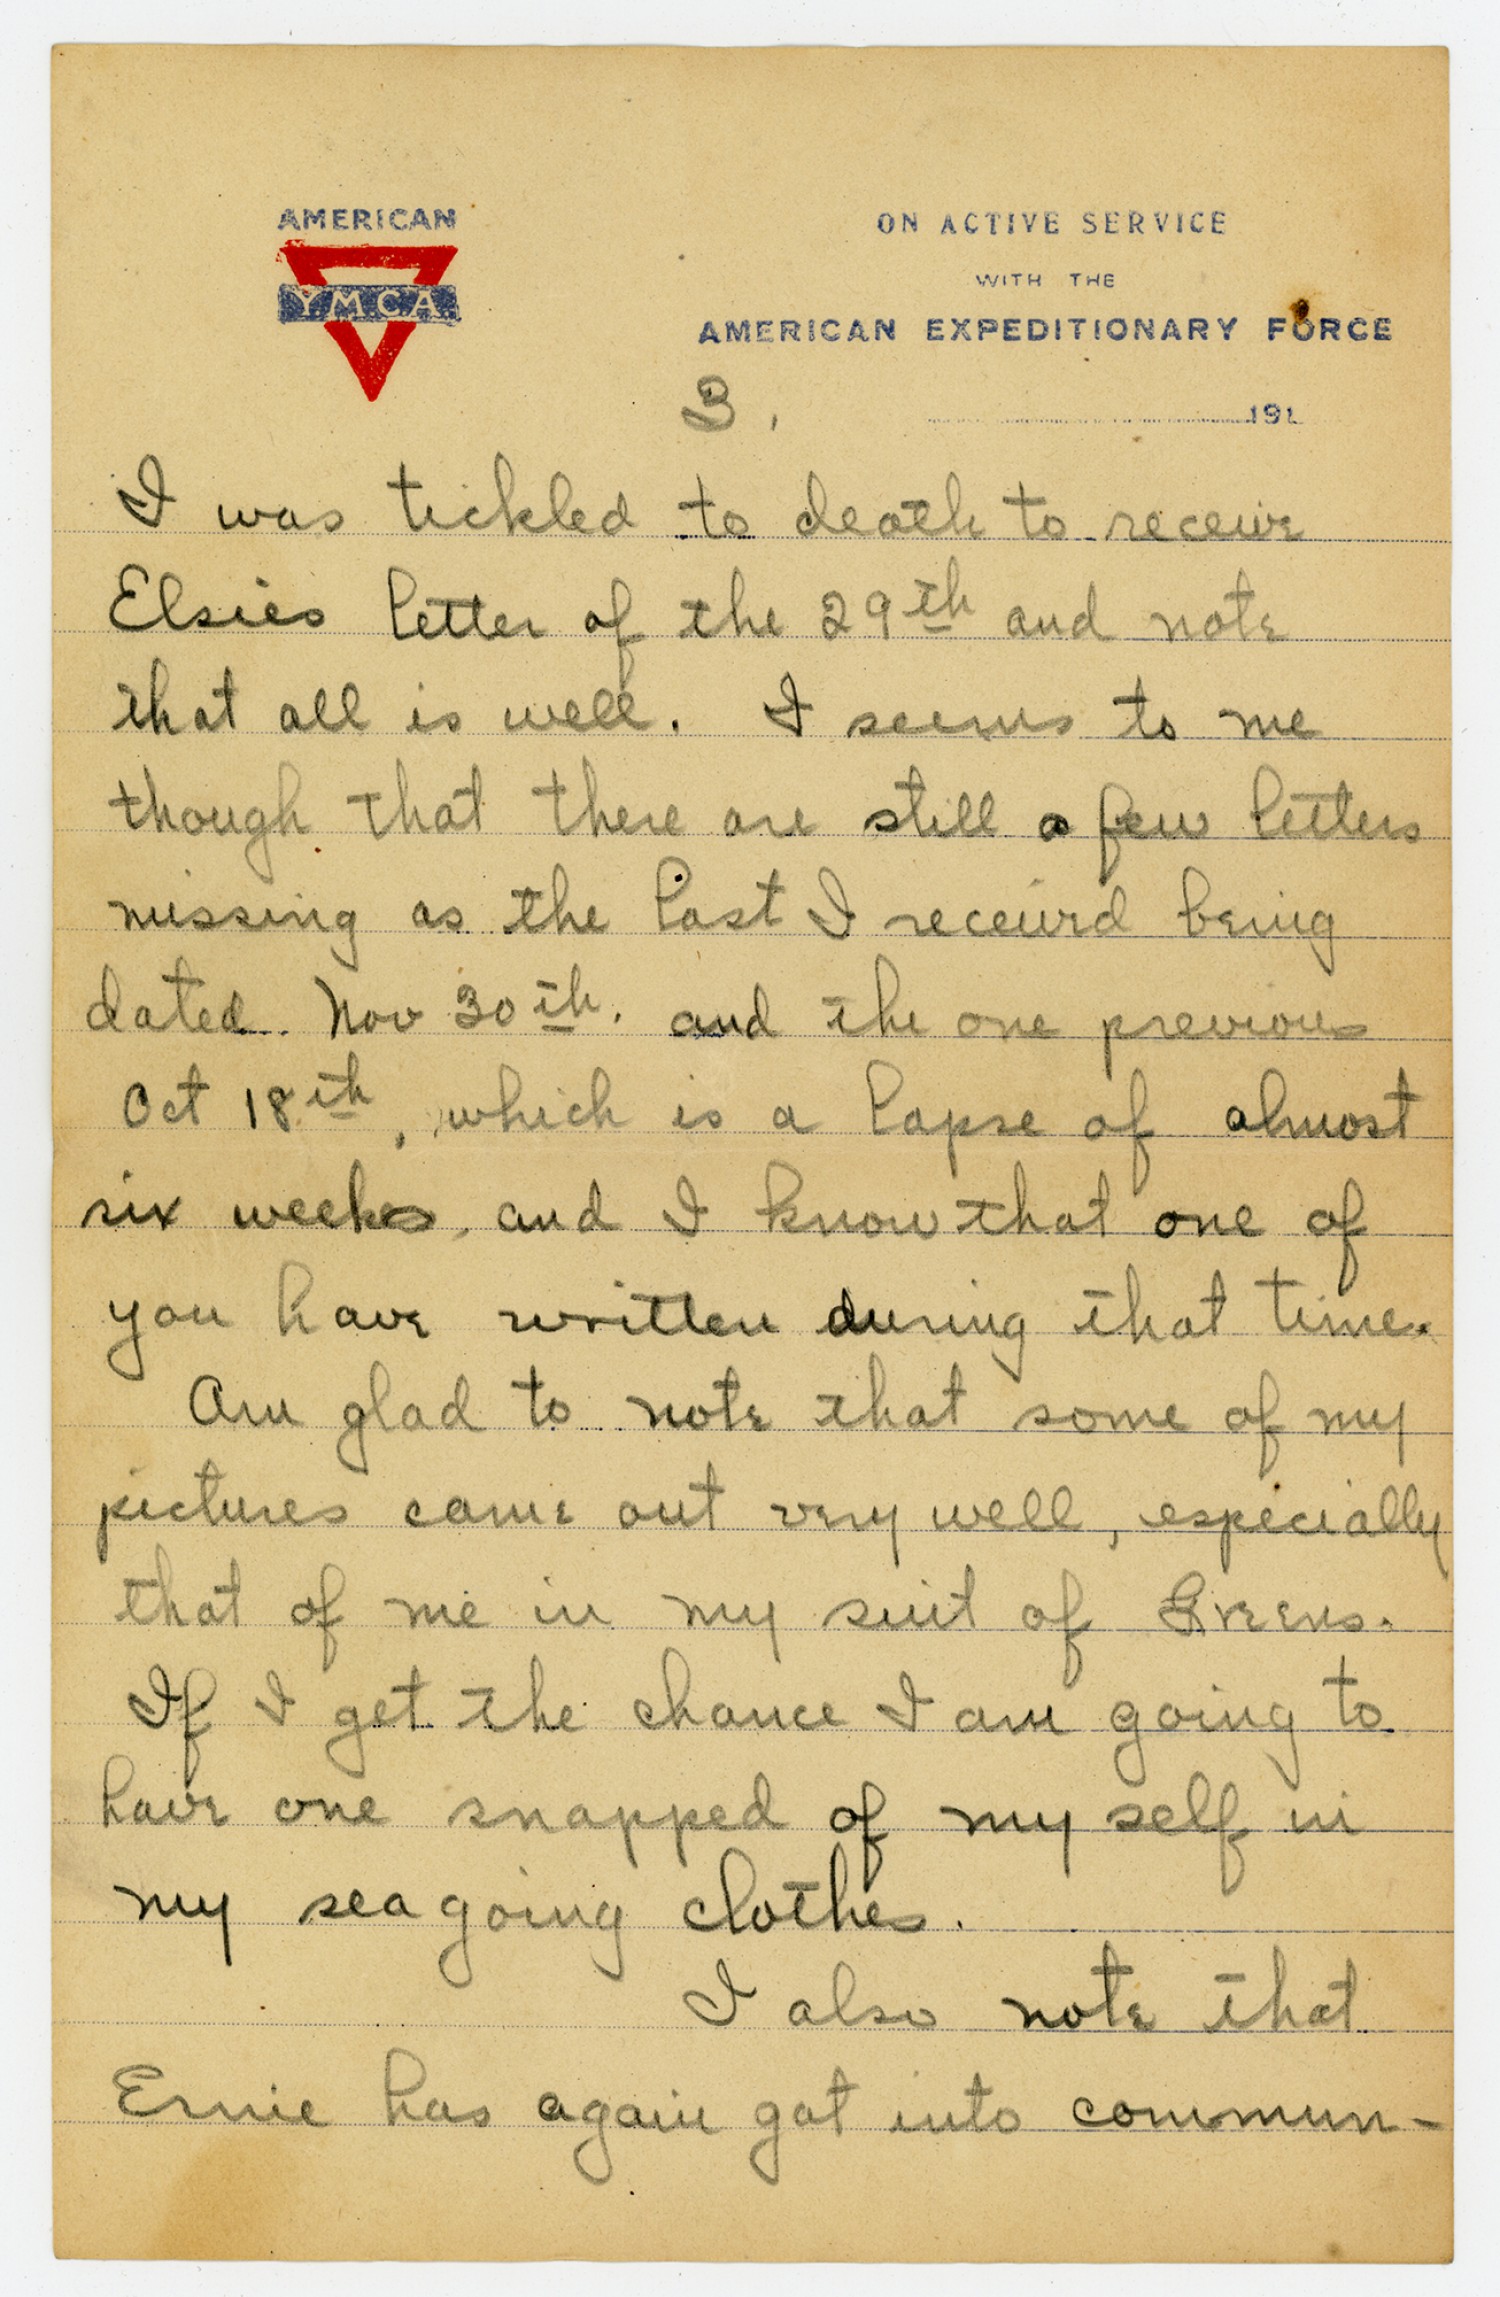 AMERICAN
YMCA
ON ACTIVE SERVICE
WITH THE
AMERICAN EXPEDITIONARY FORCE
3.
191
I was tickled to death to receive
Elsies letter of the 29th and note
that all is well. I seems to me
though that there are still a few letters
missing as the last I received being
dated Nov 30th. and the one previous
Oct 18th, which is a lapse of almost
six weeks, and I know that one of
you have written during that time.
Am glad to note that some of my
pictures came out very well, especially
that of me in my suit of Greens.
If I get the chance I am going to
have one snapped of my self in
my sea going clothes.
I also note that
Ernie has again got into commun-